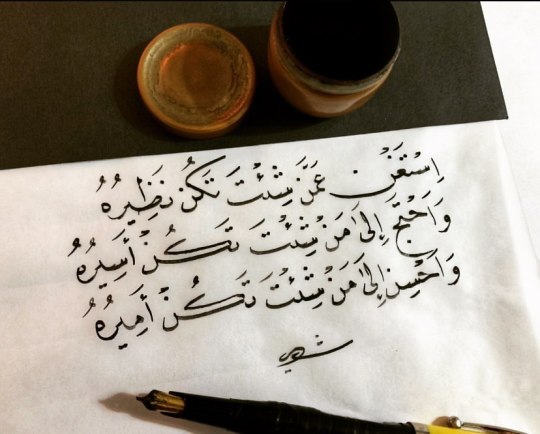 اِسْتَغْنِ عَمَّنْ شِئْتَ تَكُنْ نَظِيرُهُ
وَاحْتَجْ إِلَى مَنْ شِئْتَ تَكُنْ أَسِيرُهُ
وَاَحْسِنْ إِلَى مَنْ شِئْتَ تَكُنْ أَمِيرُهُ